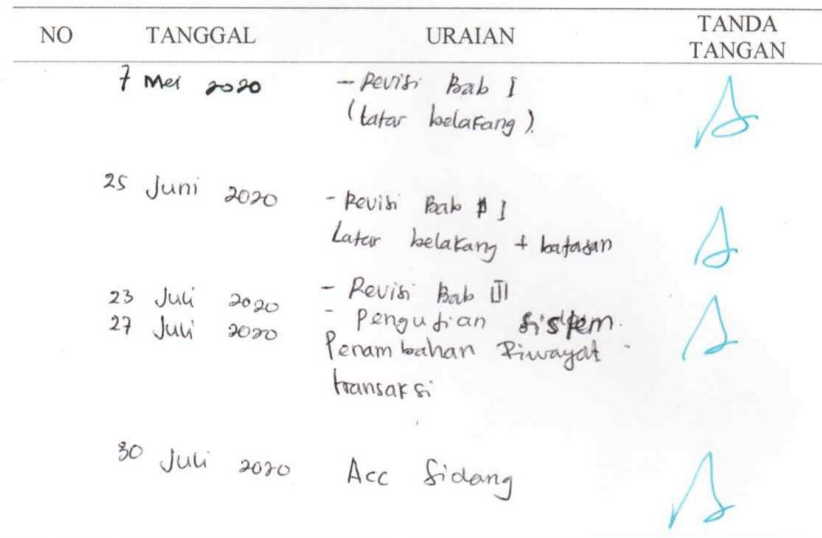 NO TANGGAL URAIAN TANDA TANGAN
7 Mei 2020 - Revisi Bab I
(Latar belakang).
25 Juni 2020 - Revisi Bab I
Latar belakang + batasan
23 Juli 2020 - Revisi Bab III
27 Juli 2020 - Pengujian sistem.
Penambahan Riwayat
transaksi
30 Juli 2020 Acc Sidang